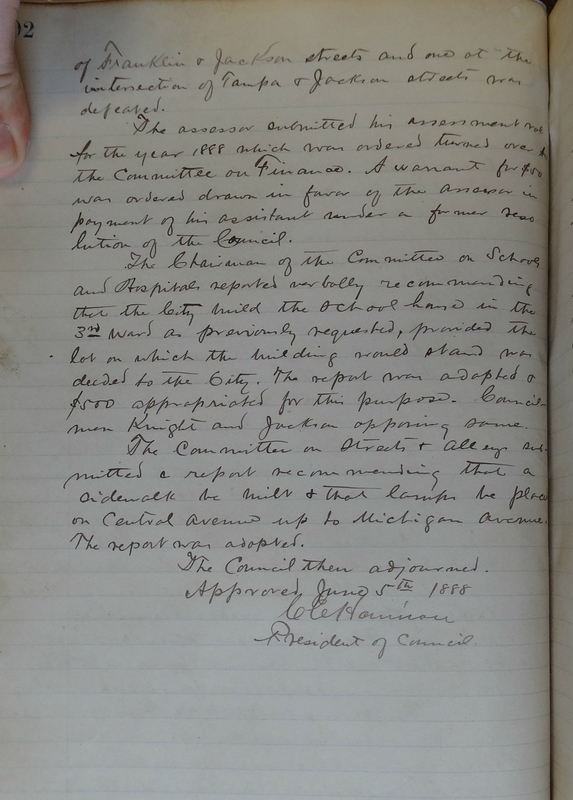 02
of Franklin & Jackson streets and one at the
intersection of Tampa & Jackson streets was
defeated.
The assessor submitted his assessment
for the year 1888 which was ordered turned over
the Committee on Finance. A warrant for $50
was ordered drawn in favor of the assessor in
payment of his assistant under a former reso
lution of the Council.
The Chairman of the Committee on Schools
and Hospitals reported verbally recommending
that the City build the school house in the
3rd ward as previously requested, provided the
lot on which the building would stand was
deeded to the City. The report was adopted &
$500 appropriated for this purpose. Council-
men Knight and Jackson opposing same.
The Committee on Streets & alleys sub-
mitted a report recommending that a
sidewalk be built & that lamps be place
on Central avenue up to Michigan avenue.
The report was adopted.
The Council then adjourned.
Approved June 5th 1888
C E Harrison
President of Council.